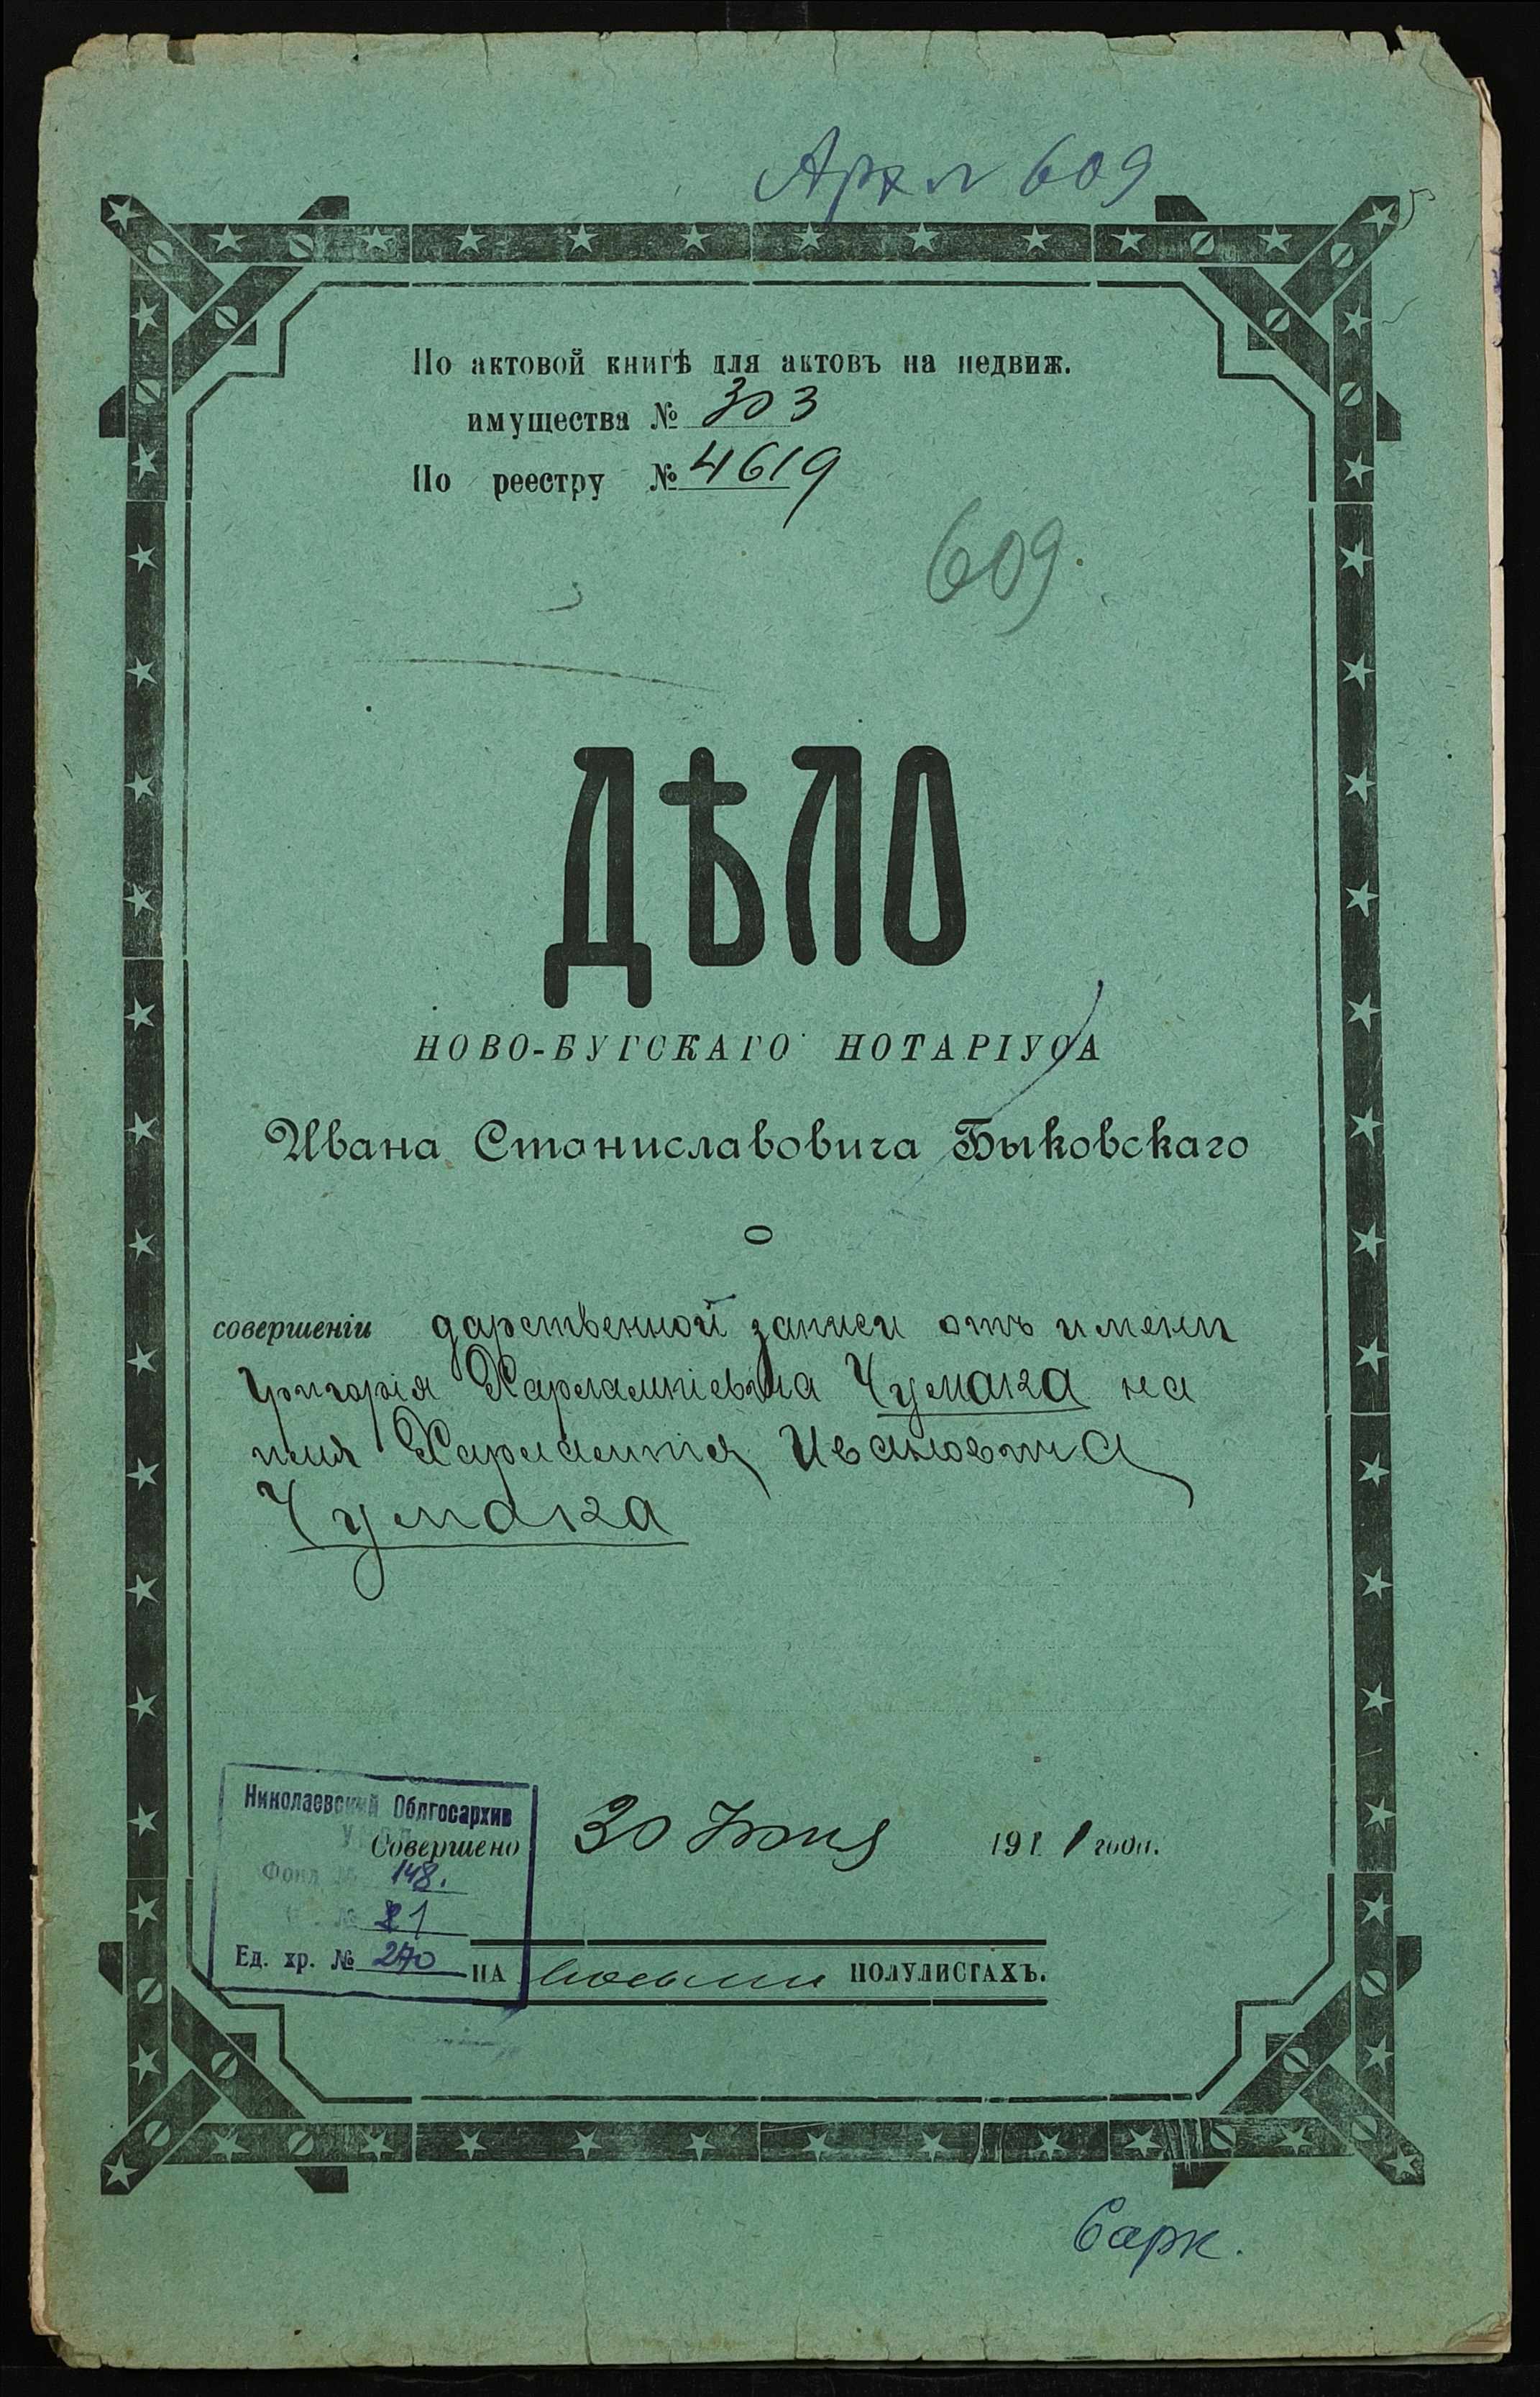 Арх № 609
По актовой книгѣ для актовъ на недвиж.
имущества № 303
По реестру № 4619
609.
ДѢЛО
НОВО-БУГСКАГО НОТАРІУСА
Ивана Станиславовича Быковскаго
о
совершеніи дарственной записи отъ имени
Григорія Харлампіевича Чумака на
имя Харлампія Ивановича
Чумака
Николаевский Облгосархив
Совершено 30 Іюня 1911 года.
Фонд № 148.
№ 21
Ед. хр. № 270
НА восьми ПОЛУЛИСТАХЪ.
6 арк.